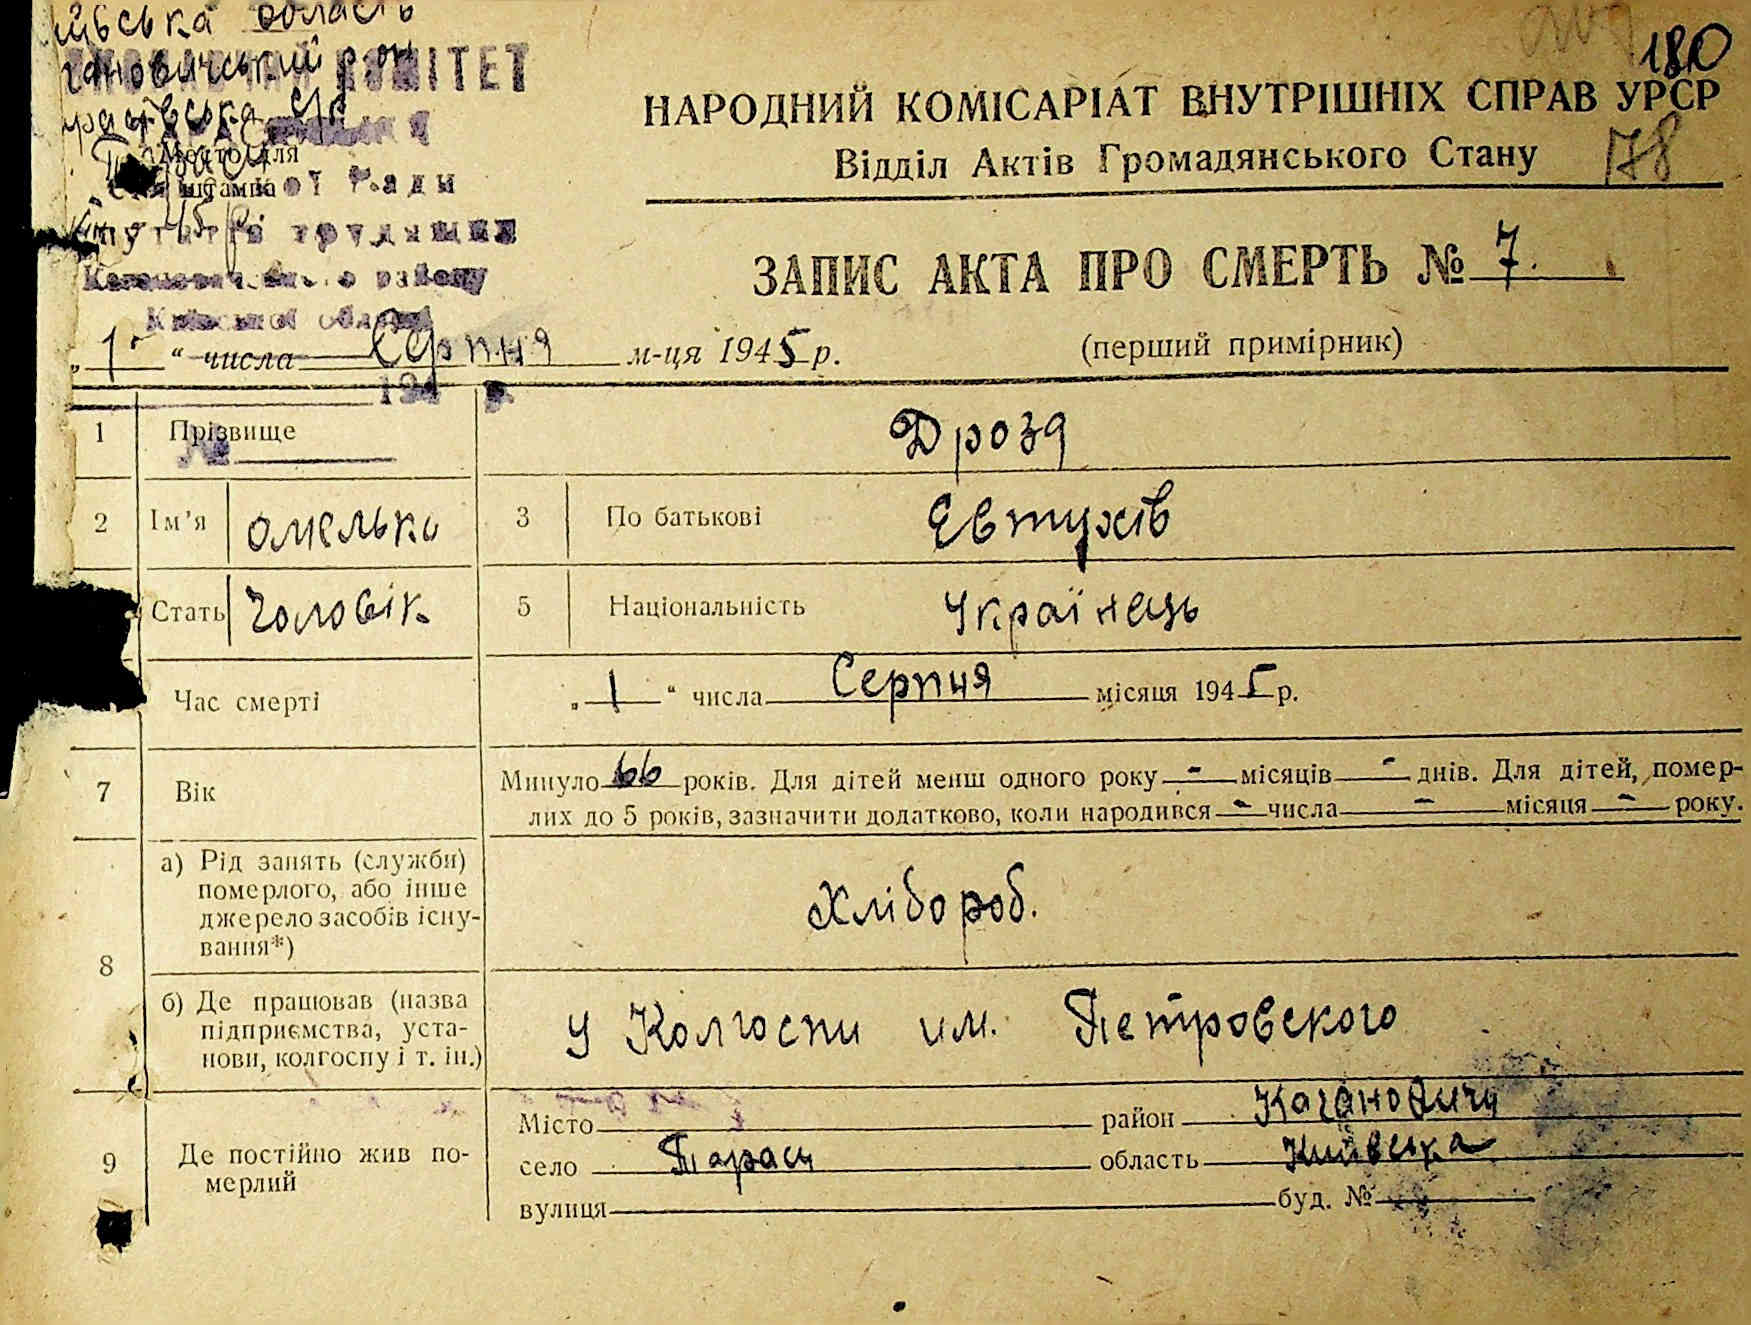 область
КОМІТЕТ
180
НАРОДНИЙ КОМІСАРІАТ ВНУТРІШНІХ СПРАВ УРСР
Відділ Актів Громадянського Стану
178
Місце для
штампа
Ради
трудящих
району
Київської області
ЗАПИС АКТА ПРО СМЕРТЬ № 7.
„1“ числа Серпня м-ця 1945 р.
(перший примірник)
194 р.
1 Прізвище Дрозд
№
2 Ім’я Омелько 3 По батькові Евтухів
Стать Чоловік 5 Національність Українець
Час смерті „1“ числа Серпня місяця 1945 р.
7 Вік Минуло 66 років. Для дітей менш одного року - місяців - днів. Для дітей, помер-
лих до 5 років, зазначити додатково, коли народився - числа - місяця - року.
8 а) Рід занять (служби)
померлого, або інше
джерело засобів існу-
вання*)
Хлібороб.
б) Де працював (назва
підприємства, уста-
нови, колгоспу і т. ін.)
у Колгоспи им. Петровского
9 Де постійно жив по-
мерлий
Місто район Кагановичи
село Тараси область Київська
вулиця буд. №